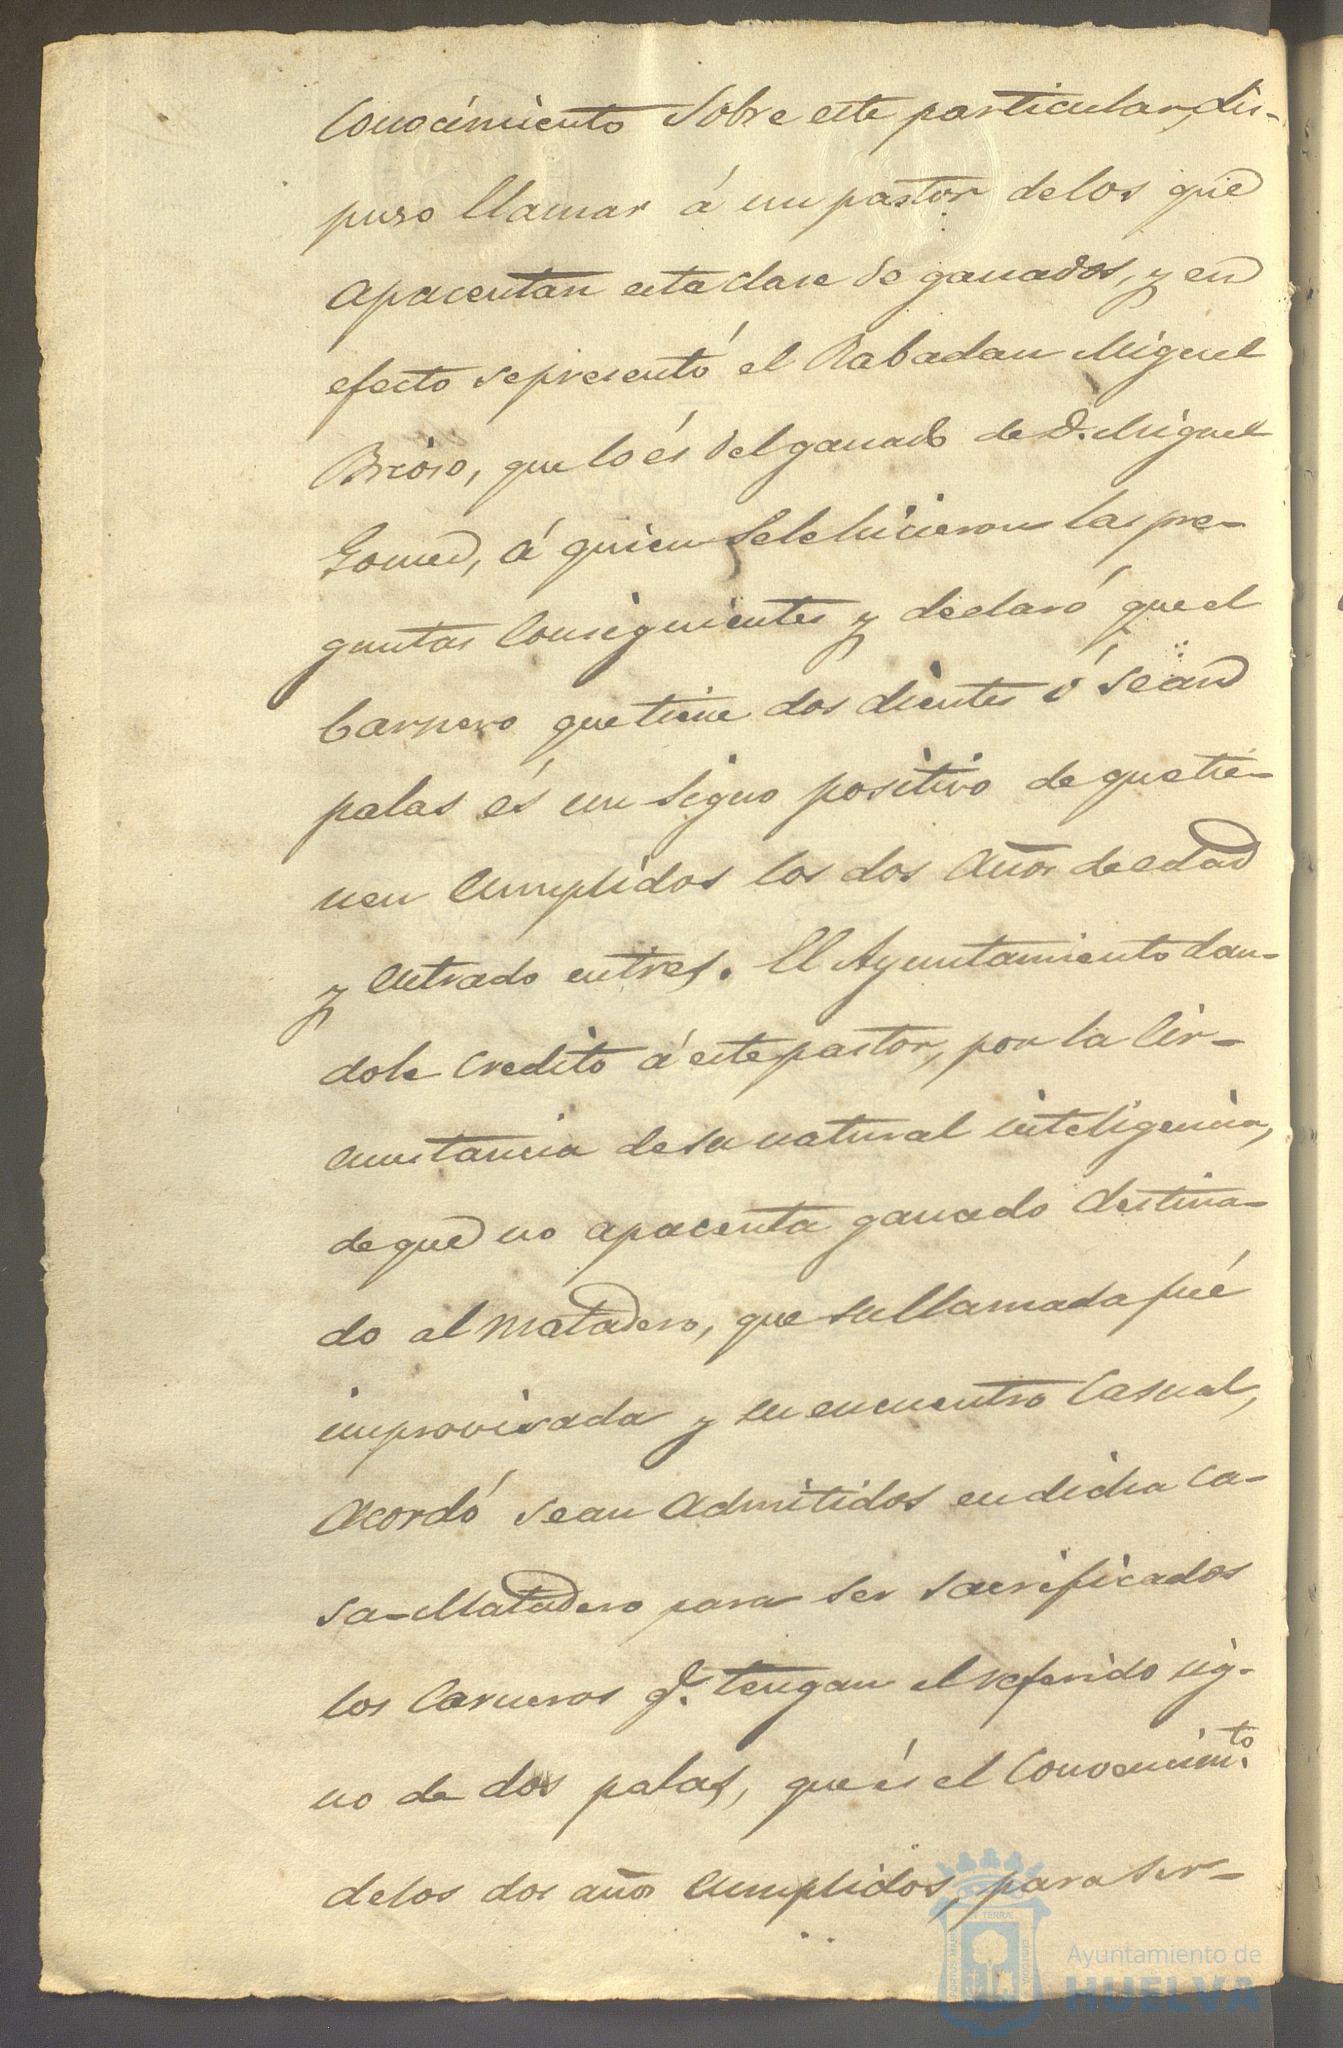 Conocimiento sobre este particular, dis-
puso llamar á un pastor delos que
apacentan esta clase de ganados, y en
efecto sepresentó el Rabadan Miguel
Brioso, que lo és del ganado de D. Miguel
Gomez, á quien sele hicieron las pre-
guntas consiguientes y declaró que el
Carnero que tiene dos dientes ó sean
palas és un signo positivo de que tie-
nen cumplidos los dos años de edad
y entrado entres. El Ayuntamiento dan-
dole credito á este pastor, por la cir-
cunstancia desu natural inteligencia,
de que no apacenta ganado destina-
do al matadero, que su llamada fué
improvisada y su encuentro casual,
Acordó sean admitidos en dicha ca-
sa-Matadero para ser sacrificados
los Carneros q.e tengan el referido sig-
no de dos palas, que és el convencim.to
delos dos años cumplidos, para ser-
Ayuntamiento de
HUELVA